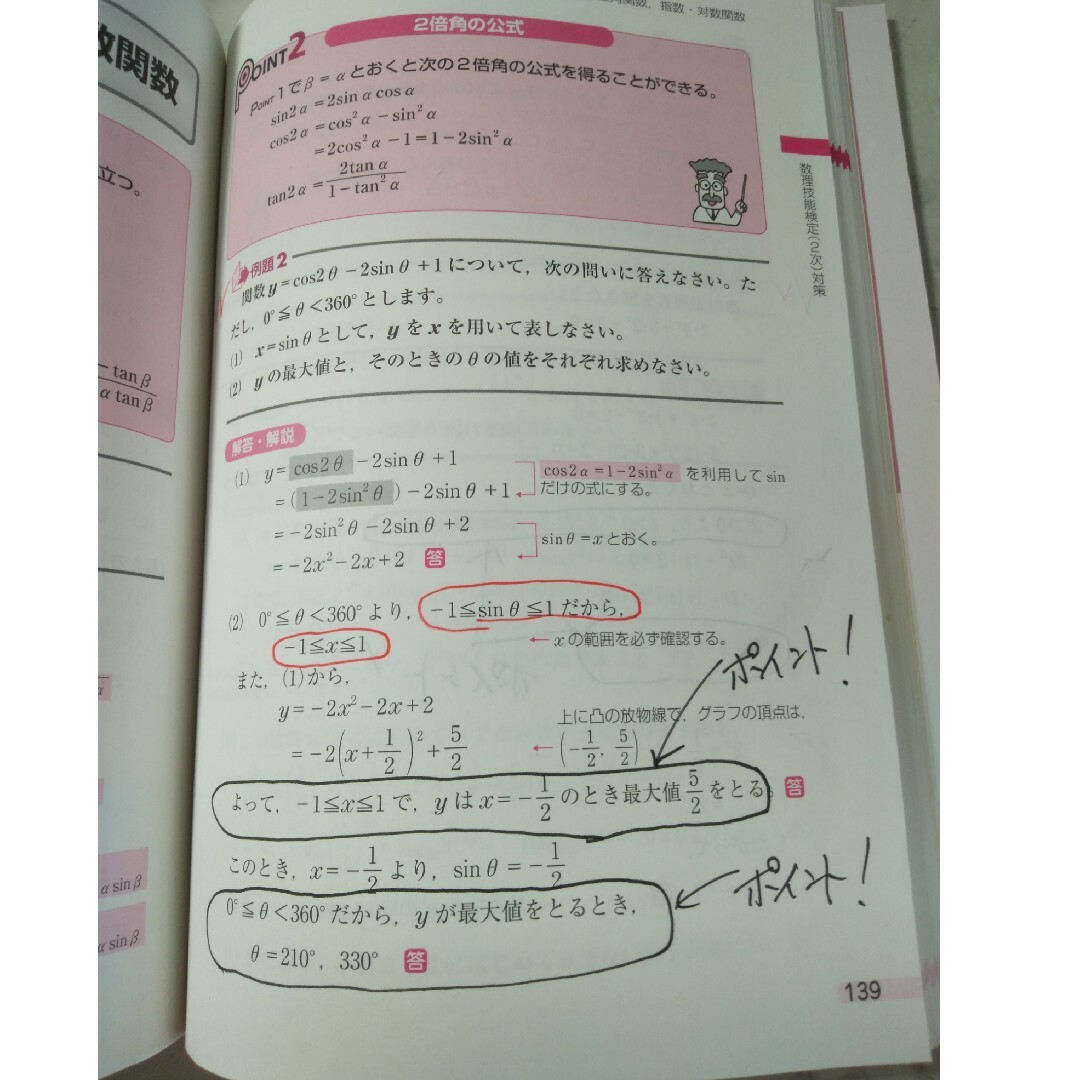 角関数，指数・対数関数
数関数
立つ。
- tanβ
α tanβ
α sinβ
α sinβ
POINT 2 2倍角の公式
POINT 1でβ=αとおくと次の2倍角の公式を得ることができる。
sin2α=2sinαcosα
cos2α=cos²α-sin²α
=2cos²α-1=1-2sin²α
tan2α=2tanα/(1-tan²α)
数理技能検定(2次)対策
例題2
関数y=cos2θ-2sinθ+1について，次の問いに答えなさい。た
だし，0°≦θ<360°とします。
(1) x=sinθとして，yをxを用いて表しなさい。
(2) yの最大値と，そのときのθの値をそれぞれ求めなさい。
解答・解説
(1) y=cos2θ-2sinθ+1
cos2α=1-2sin²α を利用してsin
=(1-2sin²θ)-2sinθ+1
だけの式にする。
=-2sin²θ-2sinθ+2
sinθ=xとおく。
=-2x²-2x+2 答
(2) 0°≦θ<360°より，-1≦sinθ≦1だから，
-1≦x≦1
←xの範囲を必ず確認する。
ポイント!
また，(1)から，
y=-2x²-2x+2
上に凸の放物線で，グラフの頂点は，
=-2(x+1/2)²+5/2 ←(-1/2, 5/2)
よって，-1≦x≦1で，yはx=-1/2のとき最大値5/2をとる。答
このとき，x=-1/2より，sinθ=-1/2
ポイント!
0°≦θ<360°だから，yが最大値をとるとき，
θ=210°，330° 答
139